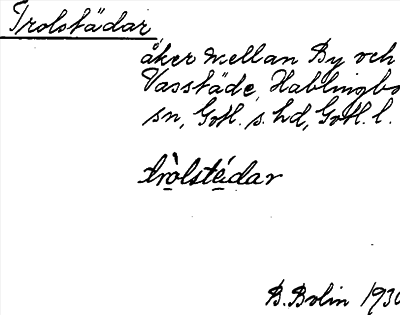 Trolstädar,
åker mellan By och
Vasstäde, Hablingbo
sn, Gotl. s. hd, Gotl. l.
tròlstédar
B. Bolin 193